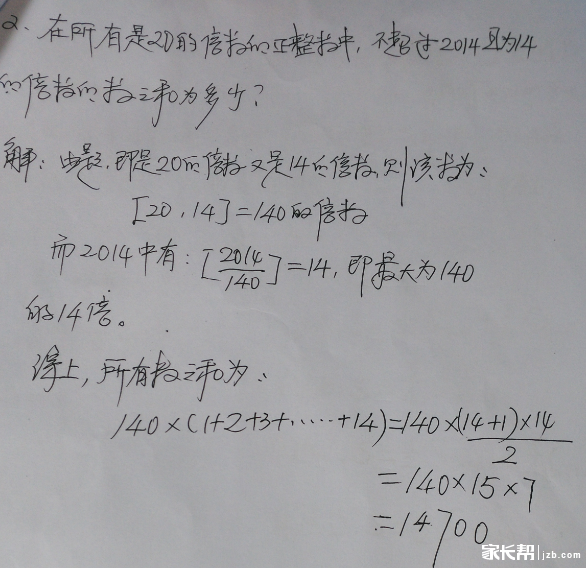 2、在所有是20的倍数的正整数中,不超过2014且为14
的倍数的数之和为多少?
解:由题,即是20的倍数又是14的倍数,则该数为:
[20,14]=140的倍数
而2014中有:[2014/140]=14,即最大为140
的14倍。
综上,所有数之和为:
140×(1+2+3+……+14)=140×(14+1)×14/2
=140×15×7
=14700
家长帮 jzb.com